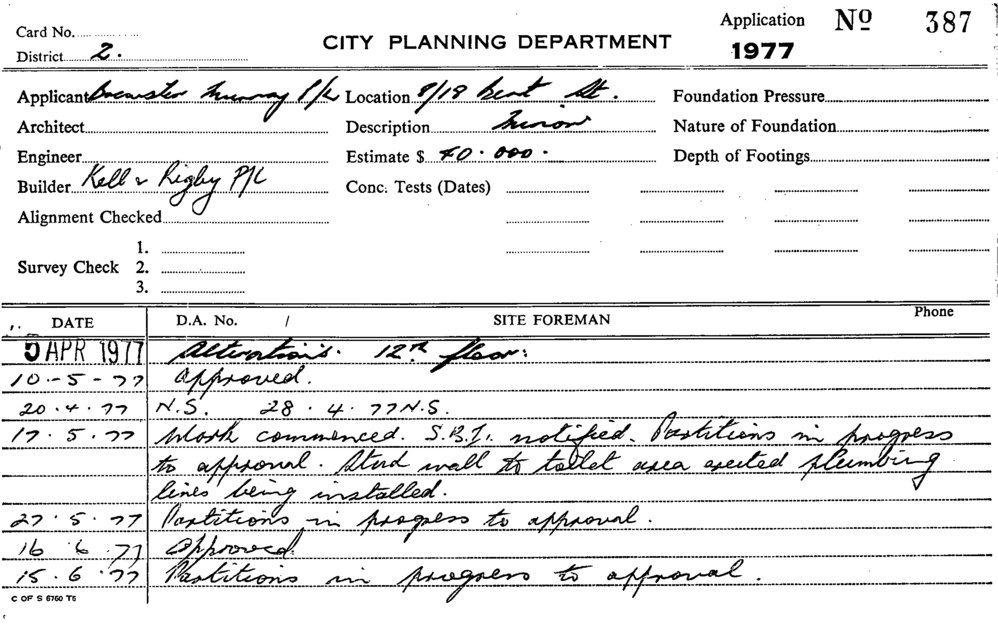 Card No.
District 2.
CITY PLANNING DEPARTMENT
Application No 387
1977
Applicant Brewster Murray P/L Location 8/18 Bent St. Foundation Pressure
Architect Description Minor Nature of Foundation
Engineer Estimate $ 40.000. Depth of Footings
Builder Kell & Rigby P/L Conc. Tests (Dates)
Alignment Checked
1.
Survey Check 2.
3.
DATE D.A. No. / SITE FOREMAN Phone
5 APR 1977 Alterations. 12th floor.
10-5-77 Approved.
20.4.77 N.S. 28.4.77 N.S.
17.5.77 Work commenced. S.B.I. notified. Partitions in progress
to approval. Stud wall to toilet area erected plumbing
lines being installed.
27.5.77 Partitions in progress to approval.
16 6.77 Approved.
15.6.77 Partitions in progress to approval.
C OF S 6760 T5